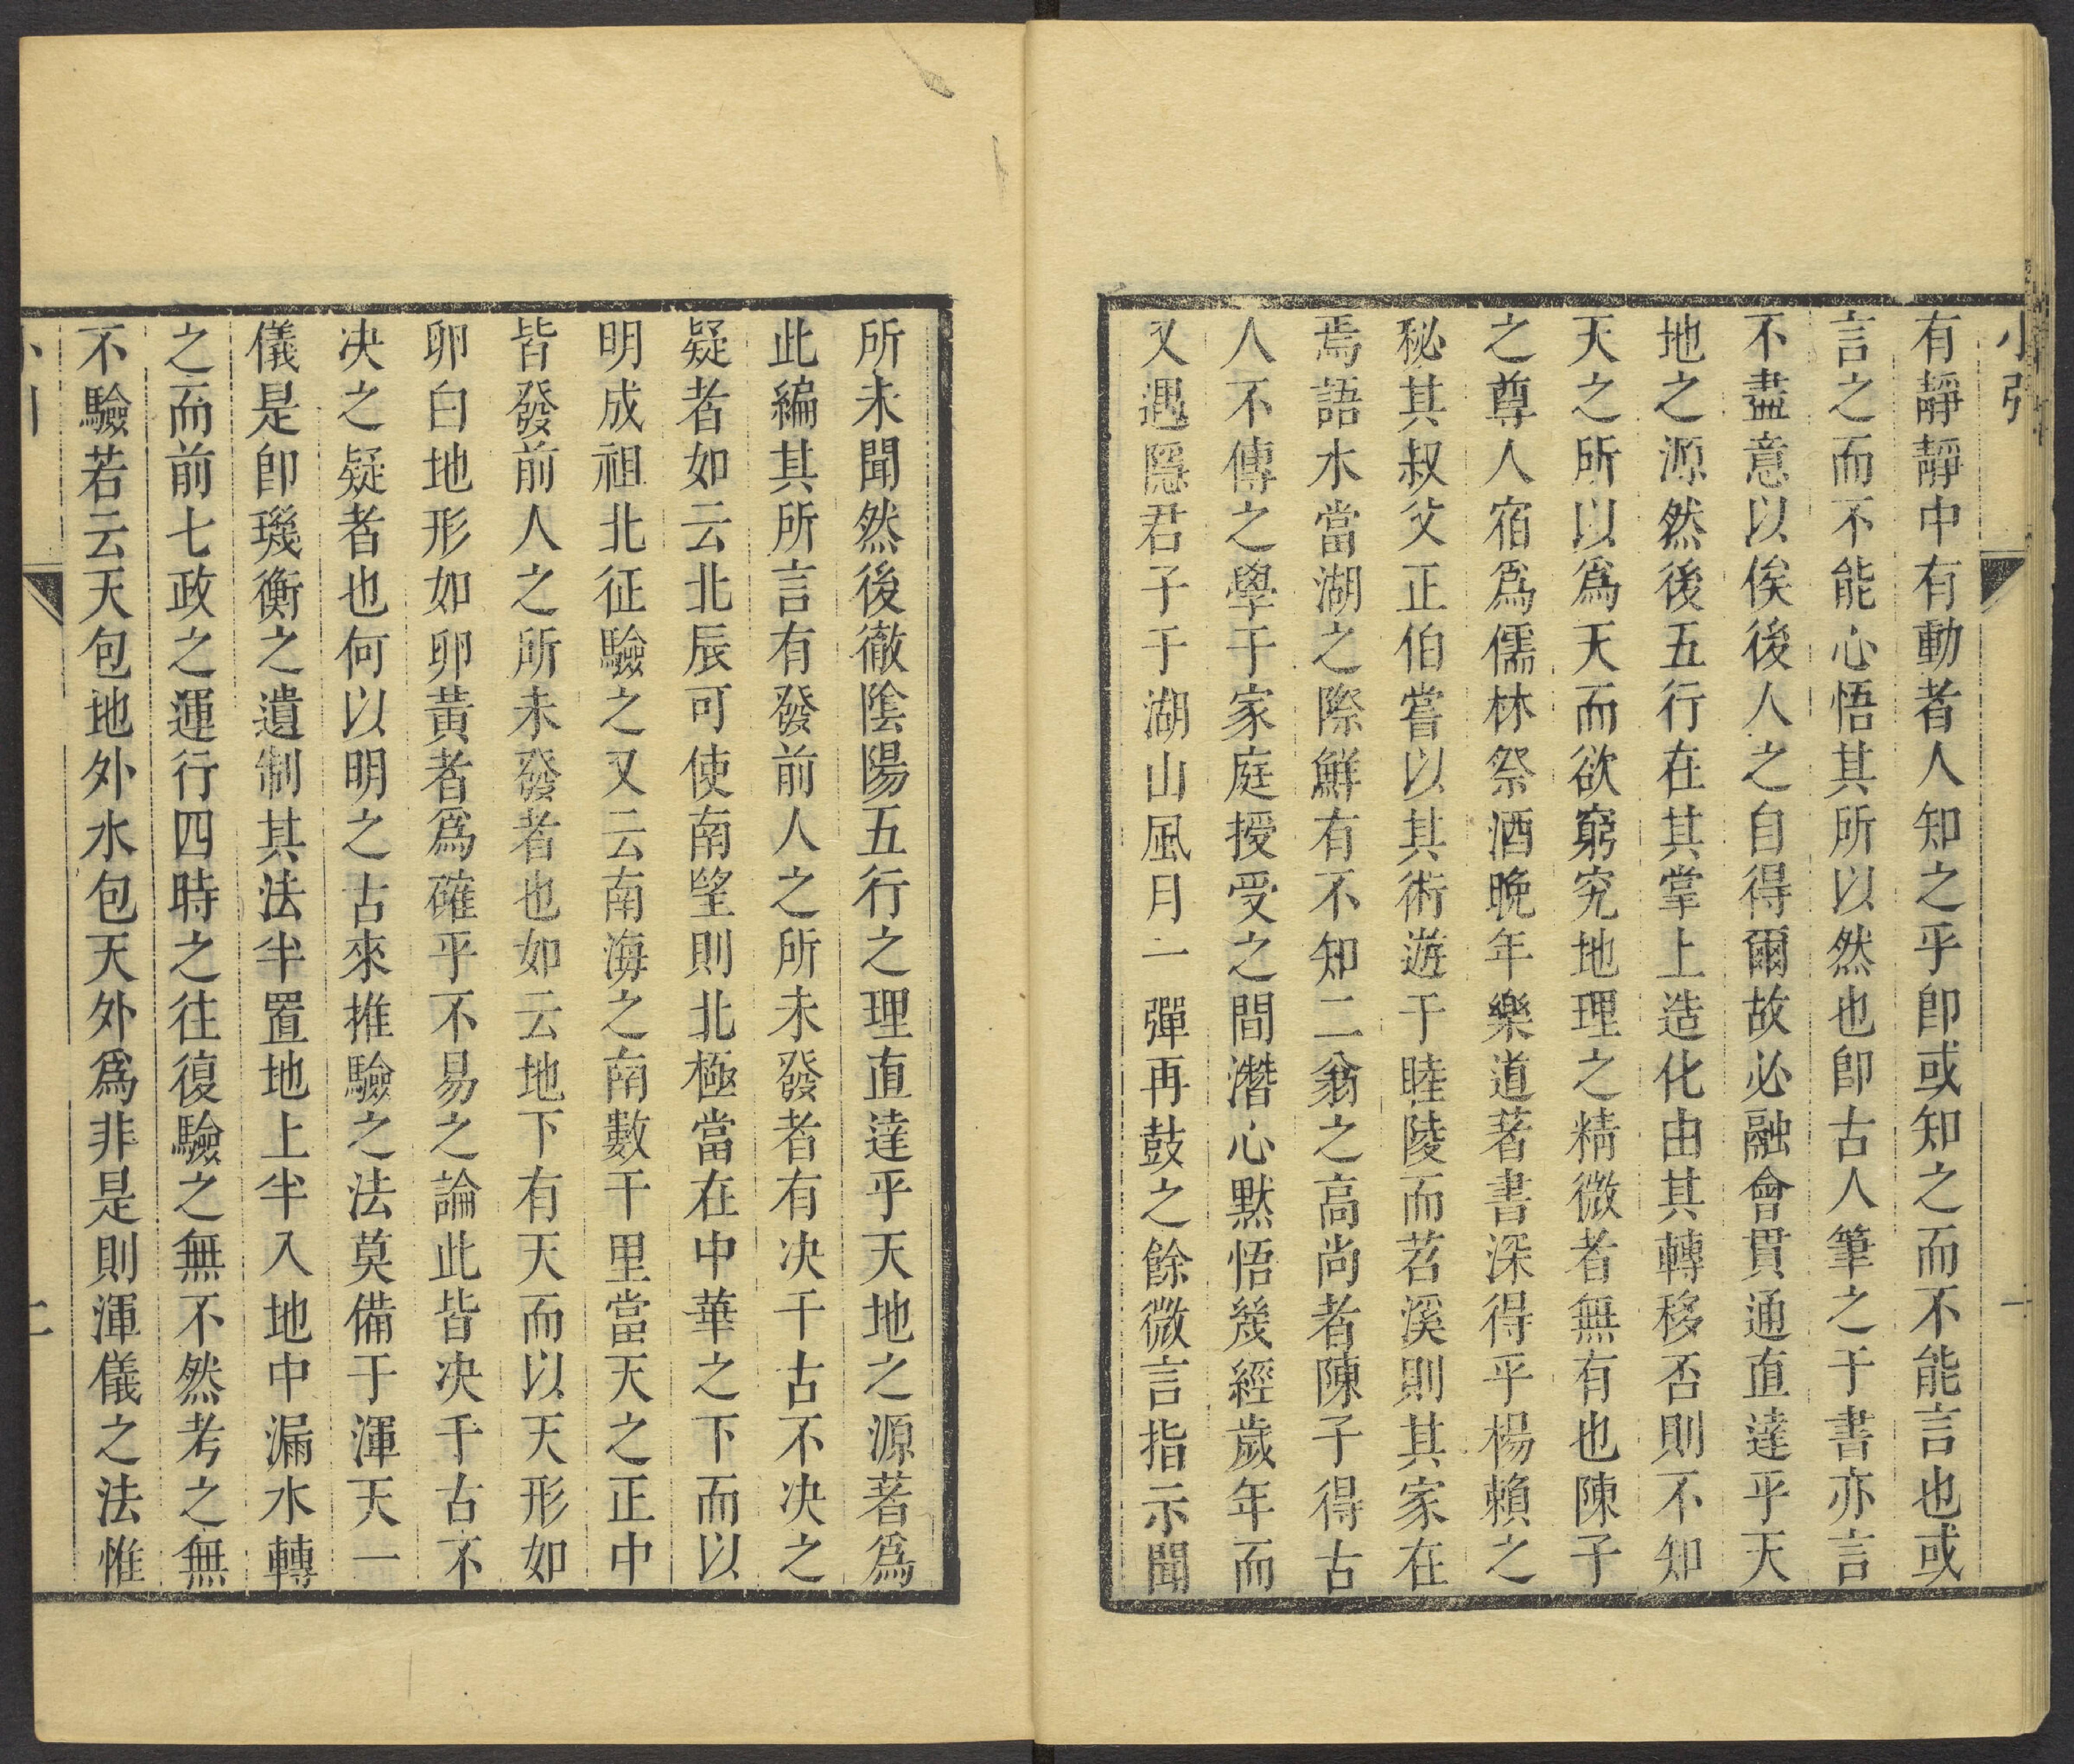 小引
一
有靜靜中有動者人知之乎卽或知之而不能言也或
言之而不能心悟其所以然也卽古人筆之于書亦言
不盡意以俟後人之自得爾故必融會貫通直達乎天
地之源然後五行在其掌上造化由其轉移否則不知
天之所以爲天而欲窮究地理之精微者無有也陳子
之尊人宿爲儒林祭酒晚年樂道著書深得乎楊賴之
秘其叔父正伯嘗以其術遊于睦陵而苕溪則其家在
焉語水當湖之際鮮有不知二翁之高尚者陳子得古
人不傳之學于家庭授受之間潛心默悟幾經歲年而
又遇隱君子于湖山風月一彈再鼓之餘微言指示聞
所未聞然後徹陰陽五行之理直達乎天地之源著爲
此編其所言有發前人之所未發者有决千古不决之
疑者如云北辰可使南望則北極當在中華之下而以
明成祖北征驗之又云南海之南數千里當天之正中
皆發前人之所未發者也如云地下有天而以天形如
卵白地形如卵黃者爲確乎不易之論此皆决千古不
决之疑者也何以明之古來推驗之法莫備于渾天一
儀是卽璣衡之遺制其法半置地上半入地中漏水轉
之而前七政之運行四時之往復驗之無不然考之無
不驗若云天包地外水包天外爲非是則渾儀之法惟
二